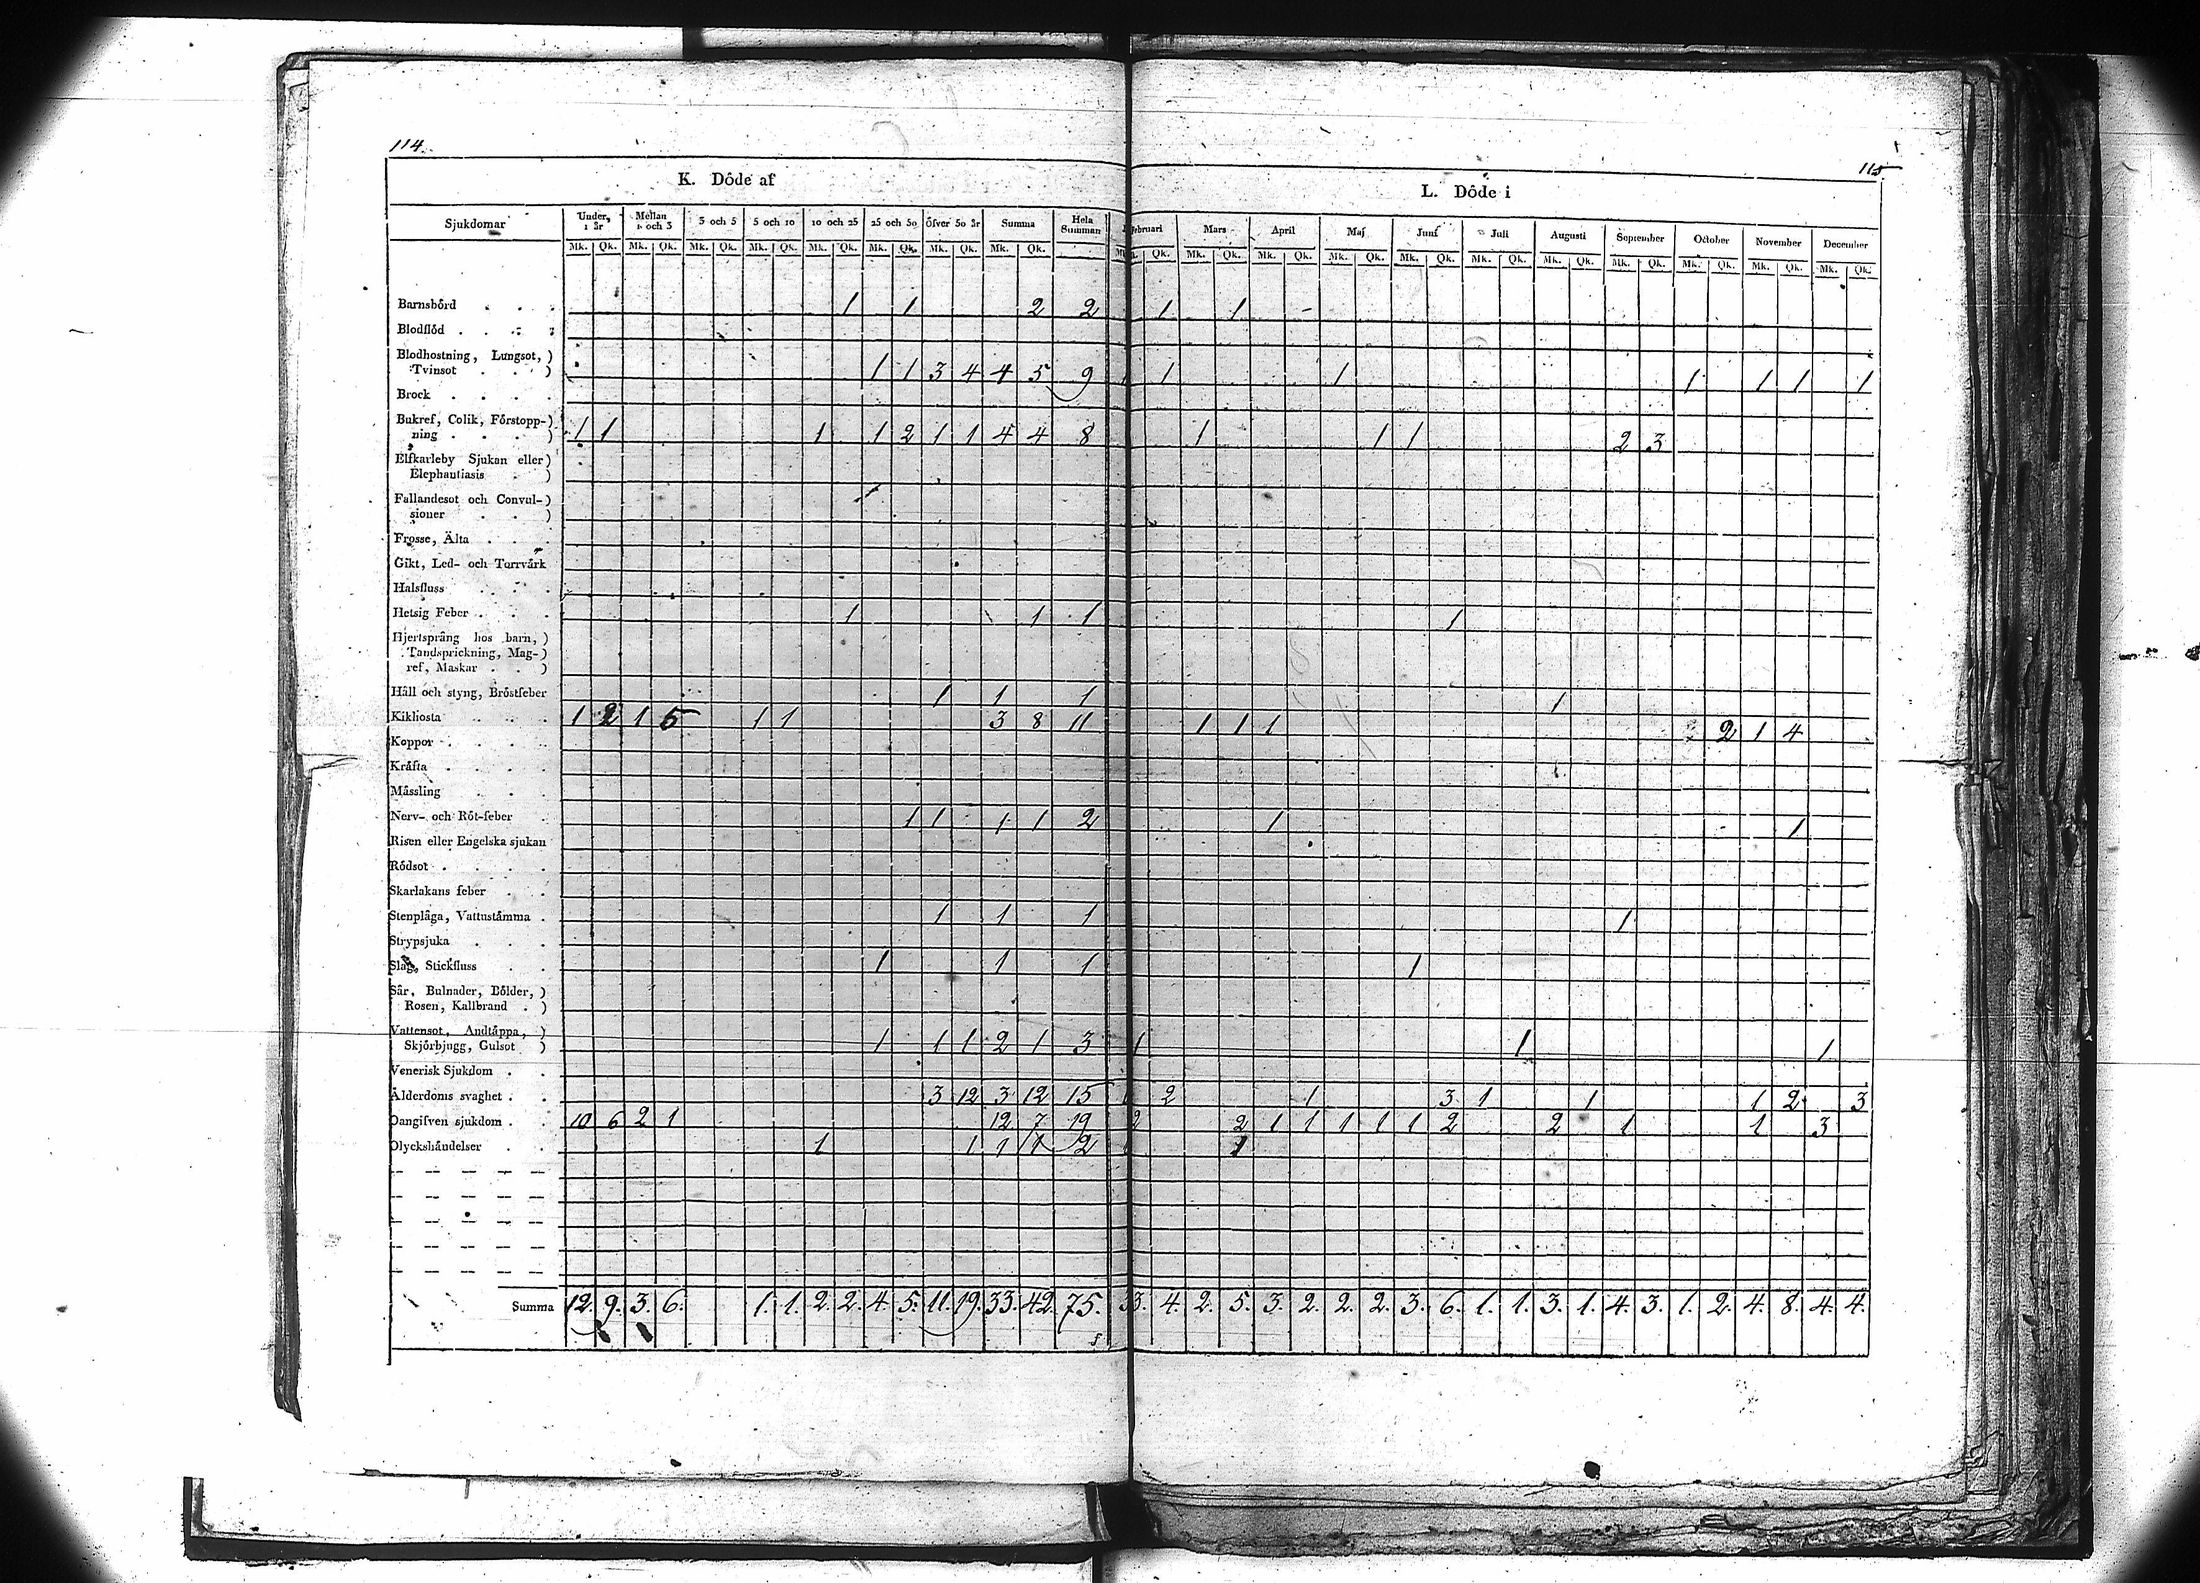 114.
K. Dôde af
Sjukdomar Under, 1 år Mellan 1 och 3 3 och 5 5 och 10 10 och 25 25 och 50 öfver 50 år Summa Hela Summan
Mk. Qk. Mk. Qk. Mk. Qk. Mk. Qk. Mk. Qk. Mk. Qk. Mk. Qk. Mk. Qk.
Barnsbörd . . . 1 1 2 2
Blodflöd . . . .
Blodhostning, Lungsot, )
Tvinsot . . . ) 1 1 3 4 4 5 9
Brock . . . .
Bukref, Colik, Förstopp-)
ning . . . . ) 1 1 1 1 2 1 1 4 4 8
Elfkarleby Sjukan eller)
Elephantiasis . )
Fallandesot och Convul-)
sioner . . )
Frosse, Älta . . .
Gikt, Led- och Torrvärk
Halsfluss . . .
Hetsig Feber . . . 1 1 1
Hjertsprång hos barn, )
Tandsprickning, Mag-)
ref, Maskar . . )
Håll och styng, Bröstfeber 1 1 1
Kikhosta . . . 1 2 1 5 1 1 3 8 11
Koppor . . . .
Kräfta . . . .
Mässling . . .
Nerv- och Röt-feber . 1 1 1 1 2
Risen eller Engelska sjukan
Rödsot . . . .
Skarlakans feber . .
Stenplåga, Vattustämma . 1 1 1
Strypsjuka . . .
Slag, Stickfluss . . 1 1 1
Sår, Bulnader, Bölder, )
Rosen, Kallbrand . )
Vattensot, Andtäppa, )
Skjörbjugg, Gulsot ) 1 1 1 2 1 3
Venerisk Sjukdom . .
Ålderdoms svaghet . . 3 12 3 12 15
Oangifven sjukdom . . 10 6 2 1 12 7 19
Olyckshändelser . . 1 1 1 1 2
Summa 12. 9. 3. 6. 1. 1. 2. 2. 4. 5. 11. 19. 33. 42. 75.
115
L. Dôde i
Februari Mars April Maj Juni Juli Augusti September October November December
Qk. Mk. Qk. Mk. Qk. Mk. Qk. Mk. Qk. Mk. Qk. Mk. Qk. Mk. Qk. Mk. Qk. Mk. Qk. Mk. Qk.
1 1
1 1 1 1 1 1
1 1 1 2 3
1
1
1 1 1 2 1 4
1 1
1
1
1 1 1
2 1 3 1 1 1 2 3
2 2 1 1 1 1 1 2 2 1 1 3
1
3. 4. 2. 5. 3. 2. 2. 2. 3. 6. 1. 1. 3. 1. 4. 3. 1. 2. 4. 8. 4. 4.